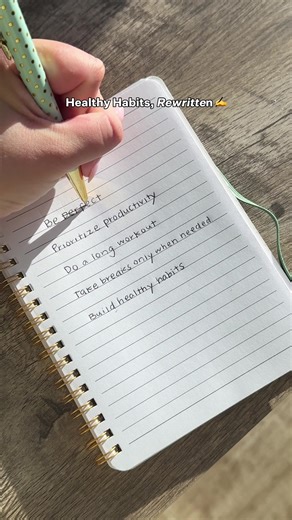 Healthy Habits, Rewritten ✍️
Be perfect
Prioritize productivity
Do a long workout
Take breaks only when needed
Build healthy habits